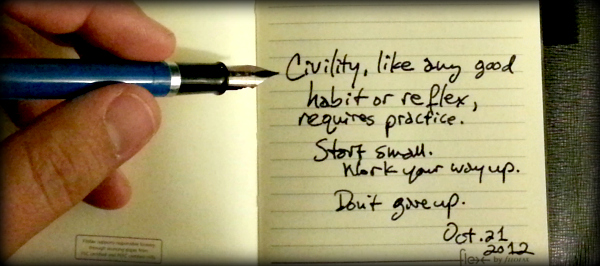 Civility, like any good
habit or reflex,
requires practice.
Start small.
Work your way up.
Don't give up.
Oct. 21
2012
flex by